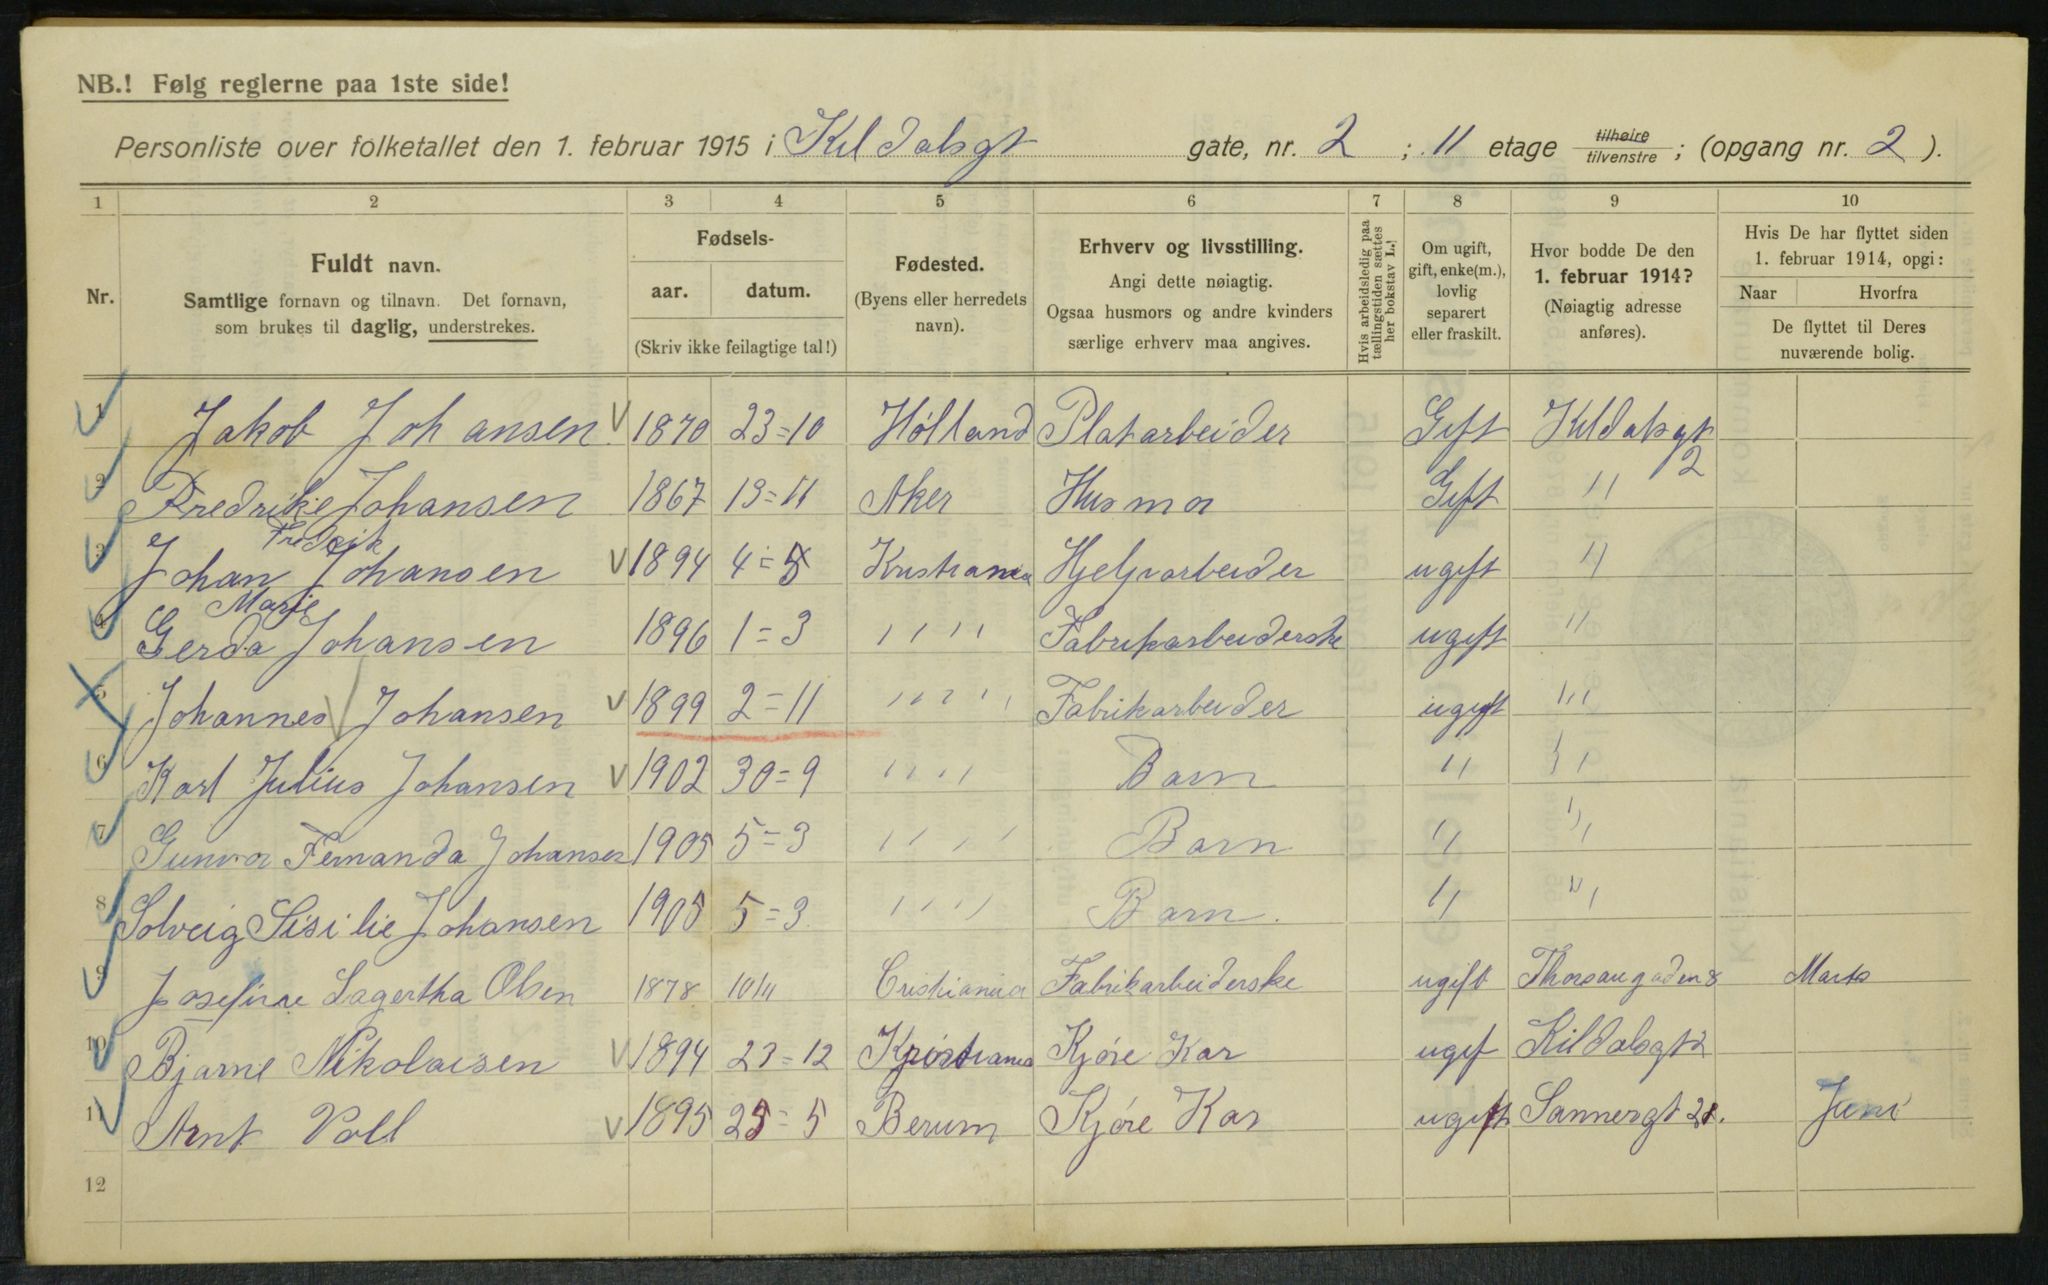 NB.! Følg reglerne paa 1ste side!
Personliste over folketallet den 1. februar 1915 i Kildalsgt gate, nr. 2 ; 11 etage tilhøire tilvenstre ; (opgang nr. 2 ).
1 2 3 4 5 6 7 8 9 10
Nr. Fuldt navn. Samtlige fornavn og tilnavn. Det fornavn, som brukes til daglig, understrekes.
Fødsels- aar. datum. (Skriv ikke feilagtige tal!)
Fødested. (Byens eller herredets navn).
Erhverv og livsstilling. Angi dette nøiagtig. Ogsaa husmors og andre kvinders særlige erhverv maa angives.
Hvis arbeidsledig paa tællingstiden sættes her bokstav L.)
Om ugift, gift, enke(m.), lovlig separert eller fraskilt.
Hvor bodde De den 1. februar 1914? (Nøiagtig adresse anføres).
Hvis De har flyttet siden 1. februar 1914, opgi: Naar Hvorfra De flyttet til Deres nuværende bolig.
1 Jakob Johansen 1870 23=10 Hólland Platarbeider Gift Kildalsgt 2
2 Fredrike Johansen 1867 13=11 Aker Husmor Gift "
3 Johan Fredrik Johansen 1894 4=5 Kristiania Hjelparbeider ugift "
4 Gerda Marie Johansen 1896 1=3 " " Fabrikarbeiderske ugift "
5 Johannes Johansen 1899 2=11 " " Fabrikarbeider ugift "
6 Karl Julius Johansen 1902 30=9 " " Barn " "
7 Gunvor Fernanda Johansen 1905 5=3 " " Barn " "
8 Solveig Sisilie Johansen 1905 5=3 " " Barn. " "
9 Josefine Lagertha Olsen 1878 10/11 Cristiania Fabrikarbeiderske ugift 8 Marts
10 Bjarne Nikolaisen 1894 23=12 Kristiania Kjøre Kar ugif Kildalsgt 2
11 Arnt Voll 1895 25=5 Berum Kjøre Kar ugift Sannergt 21. Juni
12